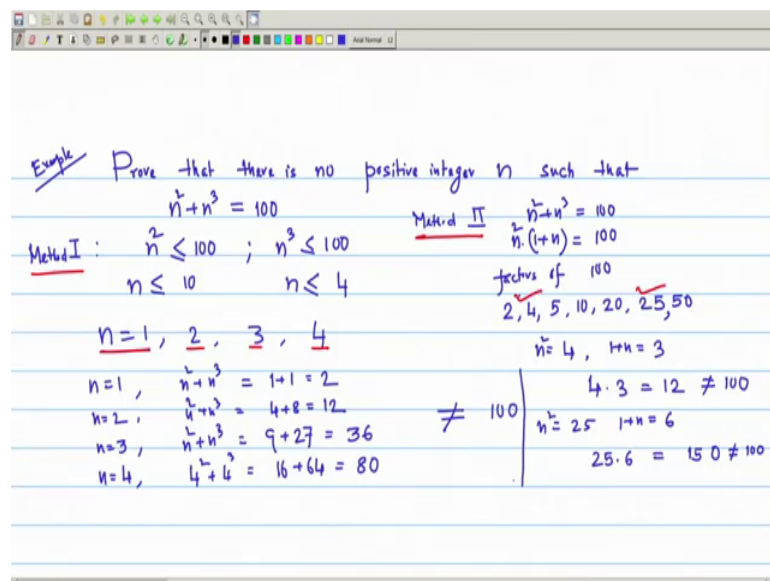 Example Prove that there is no positive integer n such that
n² + n³ = 100
Method I : n² ≤ 100 ; n³ ≤ 100
n ≤ 10 n ≤ 4
n = 1, 2, 3, 4
n=1, n²+n³ = 1+1 = 2
n=2, n²+n³ = 4+8 = 12
n=3, n²+n³ = 9+27 = 36
n=4, 4²+4³ = 16+64 = 80
≠ 100
Method II n²+n³ = 100
n²·(1+n) = 100
factors of 100
2, 4, 5, 10, 20, 25, 50
n² = 4, 1+n = 3
4·3 = 12 ≠ 100
n² = 25 1+n = 6
25·6 = 150 ≠ 100